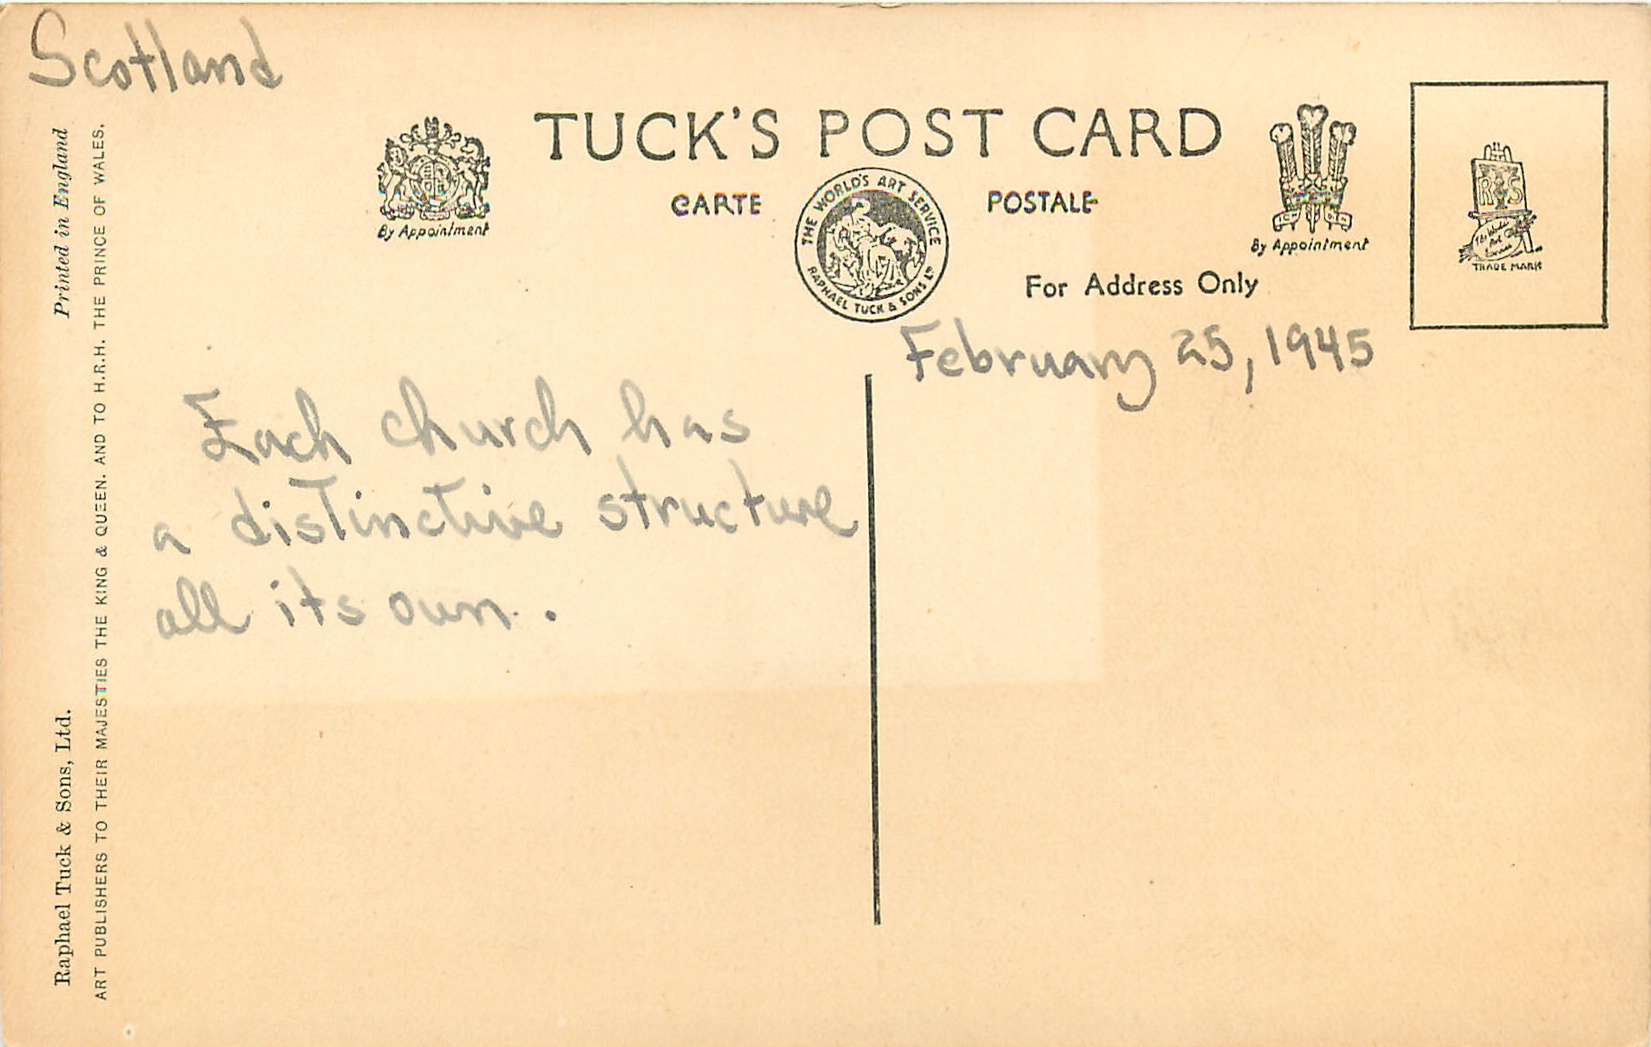 Scotland
TUCK'S POST CARD
CARTE POSTALE
By Appointment
THE WORLD'S ART SERVICE
RAPHAEL TUCK & SONS LTD
By Appointment
RTS
The World's
Art
Service
TRADE MARK
For Address Only
February 25, 1945
Each church has
a distinctive structure
all its own.
Raphael Tuck & Sons, Ltd. Printed in England
ART PUBLISHERS TO THEIR MAJESTIES THE KING & QUEEN. AND TO H.R.H. THE PRINCE OF WALES.